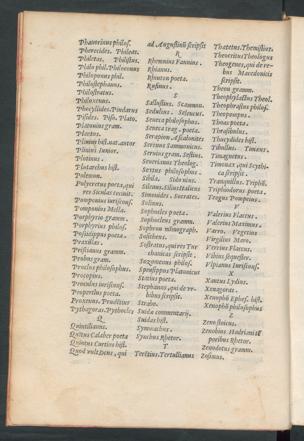 Phauorinus philos.
Pherecides. Philoat.
Phaletas. Philistus.
Philo phil. Philoxenus
Philoponus phil.
Philostephanus.
Philostratus.
Philoxenus.
Phocyllides. Pindarus
Pisides. Piso. Plato.
Platonius gram.
Plautus.
Plinius hist. nat. autor
Plinius Iunior.
Plotinus.
Plutarchus hist.
Polemon.
Polycretus poeta, qui
res Siculas tecuit.
Pomponius iuriscons.
Pomponius Mella.
Porphyrio gramm.
Porphyrius philos.
Posidippus poeta.
Praxillas.
Priscianus gramm.
Probus gram.
Proclus philosophus.
Procopius.
Proculus iuriscons.
Propertius poeta.
Proxenus. Prudentius
Pythagoras. Pytheocles
Q
Quintilianus.
Quintus Calaber poeta
Quintus Curtius hist.
Quod vult Deus, qui
ad Augustinum scripsit
R
Rhemnius Fannius.
Rhianus.
Rhinton poeta.
Rufinus.
S
Sallustius. Scamon.
Sedulius. Seleucus.
Seneca philosophus.
Seneca trag. poeta.
Serapion Ascalonites
Serenus Sammonicus.
Seruius gram. Sestius.
Seuerianus Theolog.
Sextus philosophus.
Sibyla. Sidonius.
Silenus. Silius Italicus
Simonides. Socrates.
Solinus.
Sophocles poeta.
Sophocleus gramm.
Sophron mimograph.
Sosicrates.
Sostratus, qui res Tyr
rhenicas scripsit.
Sozomenus philos.
Speusippus Platonicus
Statius poeta.
Stephanus, qui de vr-
bibus scripsit.
Strabo.
Suidæ commentarij.
Suidas hist.
Symmachus.
Synesius Rhetor.
T
Tertius. Tertullianus
Theætetus. Themistior.
Theocritus Theologus
Theogenes, qui de re-
bus Macedonicis
scripsit.
Theon gramm.
Theophylactus Theol.
Theophrastus philos.
Theopompus.
Thoas poeta.
Thrasibulus.
Thucydides hist.
Tibullus. Timæus.
Timagnetus.
Timonax, qui Scythi-
ca scripsit.
Tranquillus. Triphil.
Triphiodorus poeta.
Trogus Pompeius.
V
Valerius Flaccus.
Valerius Maximus.
Varro. Vegetius
Virgilius Maro.
Verrius Flaccus.
Vibius sequester.
Vlpianus Iurisconf.
X
Xantus Lydius.
Xenagoras.
Xenophō Ephes. hist.
Xenophō philosophus
Z
Zeno stoicus.
Zenobius Hadriani tē
poribus Rhetor.
Zenodotus gramm.
Zosimus.